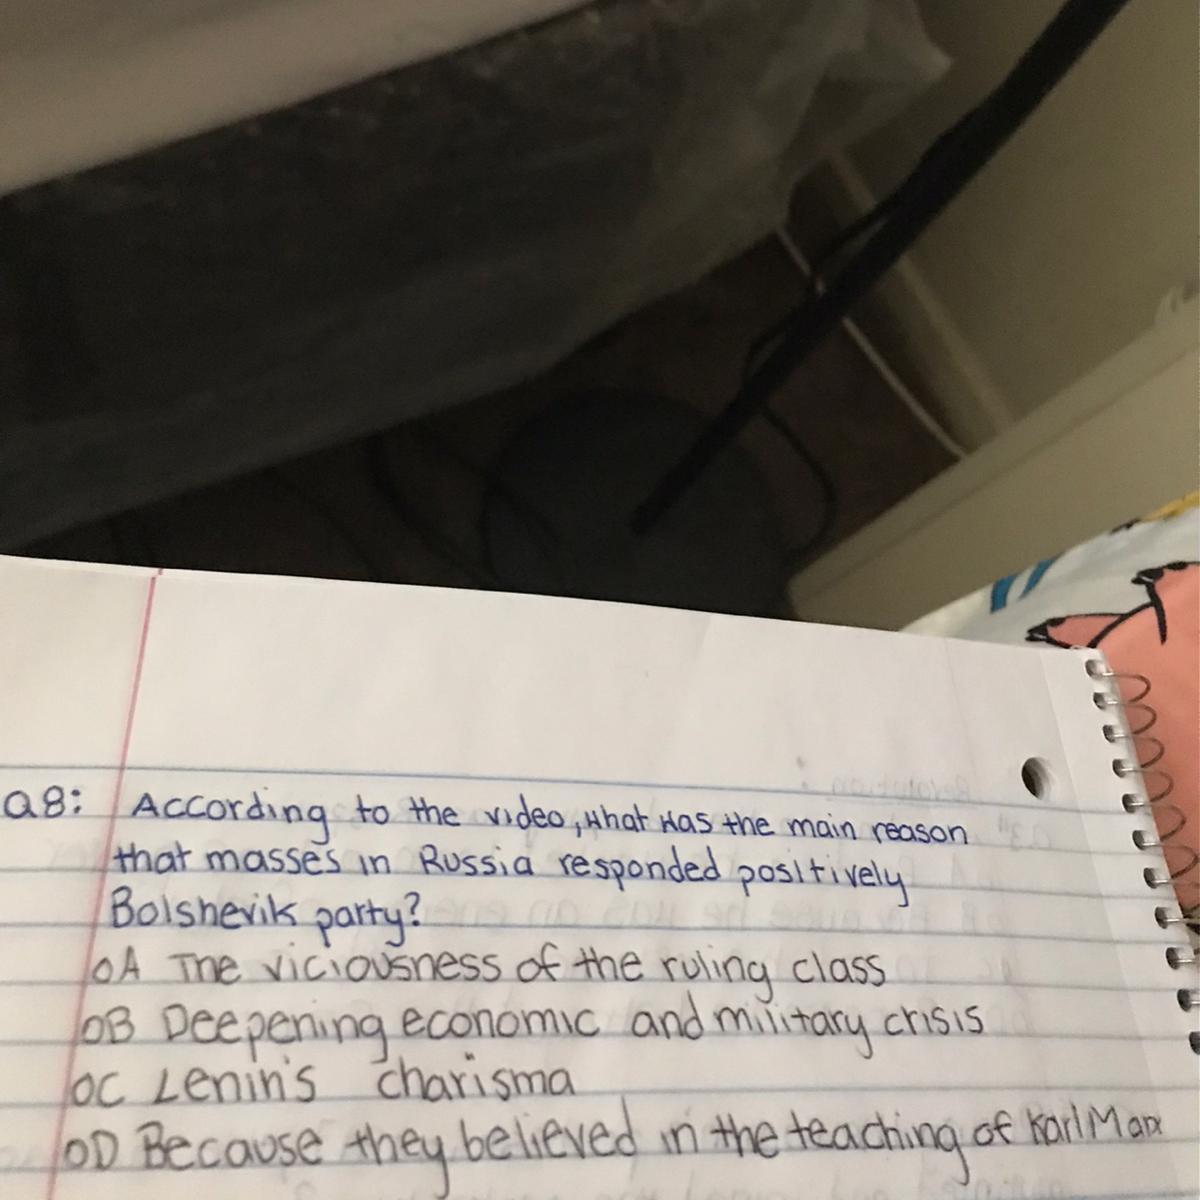 Q8: According to the video, what was the main reason
that masses in Russia responded positively
Bolshevik party?
OA The viciousness of the ruling class
OB Deepening economic and military crisis
OC Lenin's charisma
OD Because they believed in the teaching of Karl Marx